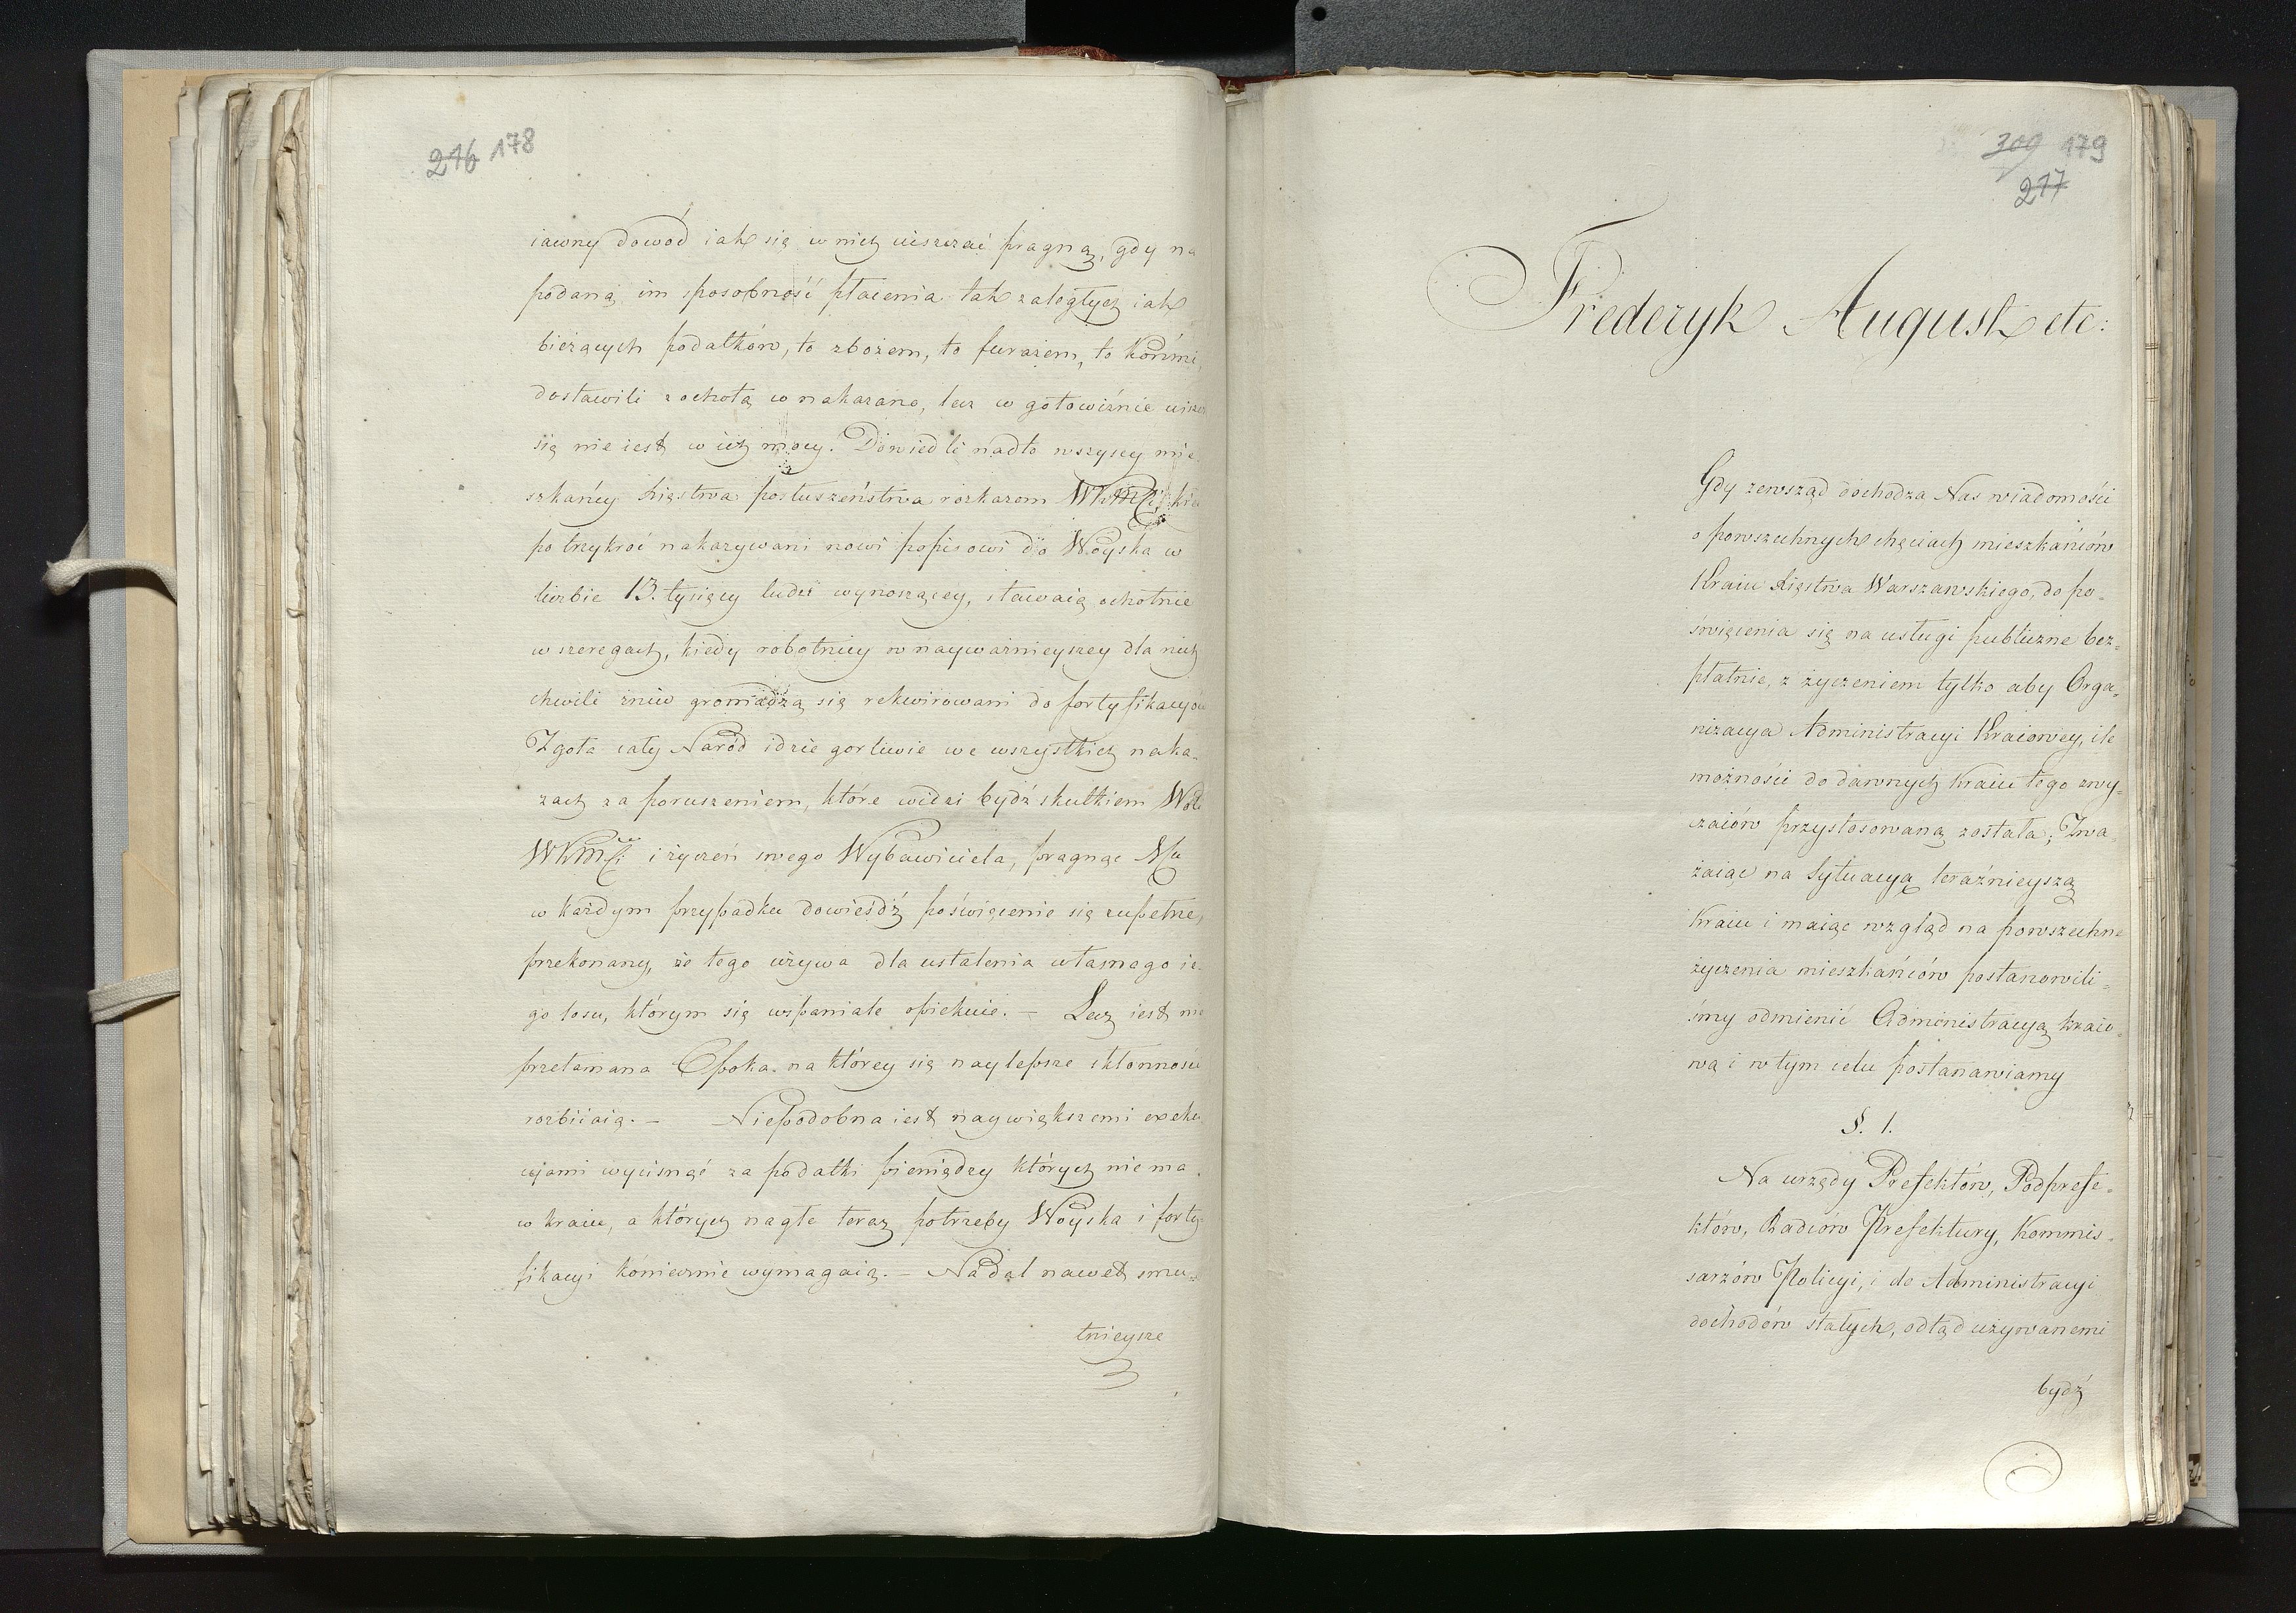 216 178
iawny dowód iak się w nich uiszczać pragną, gdy na
podaną im sposobność płacenia tak zaległych iak
bieżących podatków, to zbożem, to furażem, to końmi,
dostawili z ochotą co nakazano, lecz w gotowiźnie uiszcz
się nie iest w ich mocy. Dowiedli nadto wszyscy mie
szkańcy Xięstwa posłuszeństwa rozkazom WKMCi, kie
po trzykroć nakazywani nowi popisowi do Woyska w
liczbie 13. tysięcy ludzi wynoszącey, stawaią ochotnie
w szeregach, kiedy robotnicy w nayważnieyszey dla nich
chwili żniw gromadzą się rekwirowani do fortyfikacyów
Zgoła cały Naród idzie gorliwie we wszystkich naka-
zach za poruszeniem, które widzi bydź skutkiem Woli
WKMCi i życzeń swego Wybawiciela, pragnąc Mu
w każdym przypadku dowieśdź poświęcenie się zupełne,
przekonany, że tego używa dla ustalenia własnego ie-
go losu, którym się wspaniale opiekuie. - Lecz iest nie
przełamana Opoka na którey się naylepsze skłonności
rozbiiaią. - Niepodobna iest naywiększemi exeku
cyami wycisnąć za podatki pieniędzy których nie ma
w kraiu, a których nagłe teraz potrzeby Woyska i forty-
fikacyi koniecznie wymagaią. - Nadal nawet smu-
tnieysze
309 179
217
Frederyk August etc:
Gdy zewsząd dochodzą Nas wiadomości
o powszechnych chęciach mieszkańców
Kraiu Xięstwa Warszawskiego, do po-
święcenia się na usługi publiczne bez-
płatnie, z życzeniem tylko aby Orga-
nizacya Administracyi Kraiowey, ile
możności do dawnych kraiu tego zwy-
czaiów przystosowaną została; Zwa-
żaiąc na Sytuacyą teraźnieyszą
Kraiu i maiąc wzgląd na powszechne
życzenia mieszkańców postanowili-
śmy odmienić Administracyą kraio-
wą i w tym celu postanawiamy
§. 1.
Na urzędy Prefektów, Podprefe-
któw, Radców Prefektury, Kommis-
sarzów Policyi, i do Administracyi
dochodów stałych, odtąd używanemi
bydź